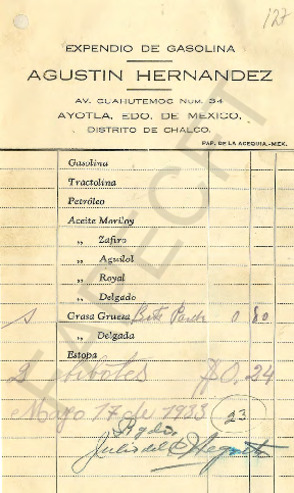 127
EXPENDIO DE GASOLINA
AGUSTIN HERNANDEZ
AV. CUAHUTEMOC NUM. 34
AYOTLA, EDO. DE MEXICO.
DISTRITO DE CHALCO.
PAP. DE LA ACEQUIA.-MEX.
Gasolina
Tractolina
Petróleo
Aceite Mariloy
„ Zafiro
„ Aguilol
„ Royal
„ Delgado
Grasa Gruesa 0 80
„ Delgada
Estopa
2 $0.24
Mayo 17 de 1933 23
Julio del